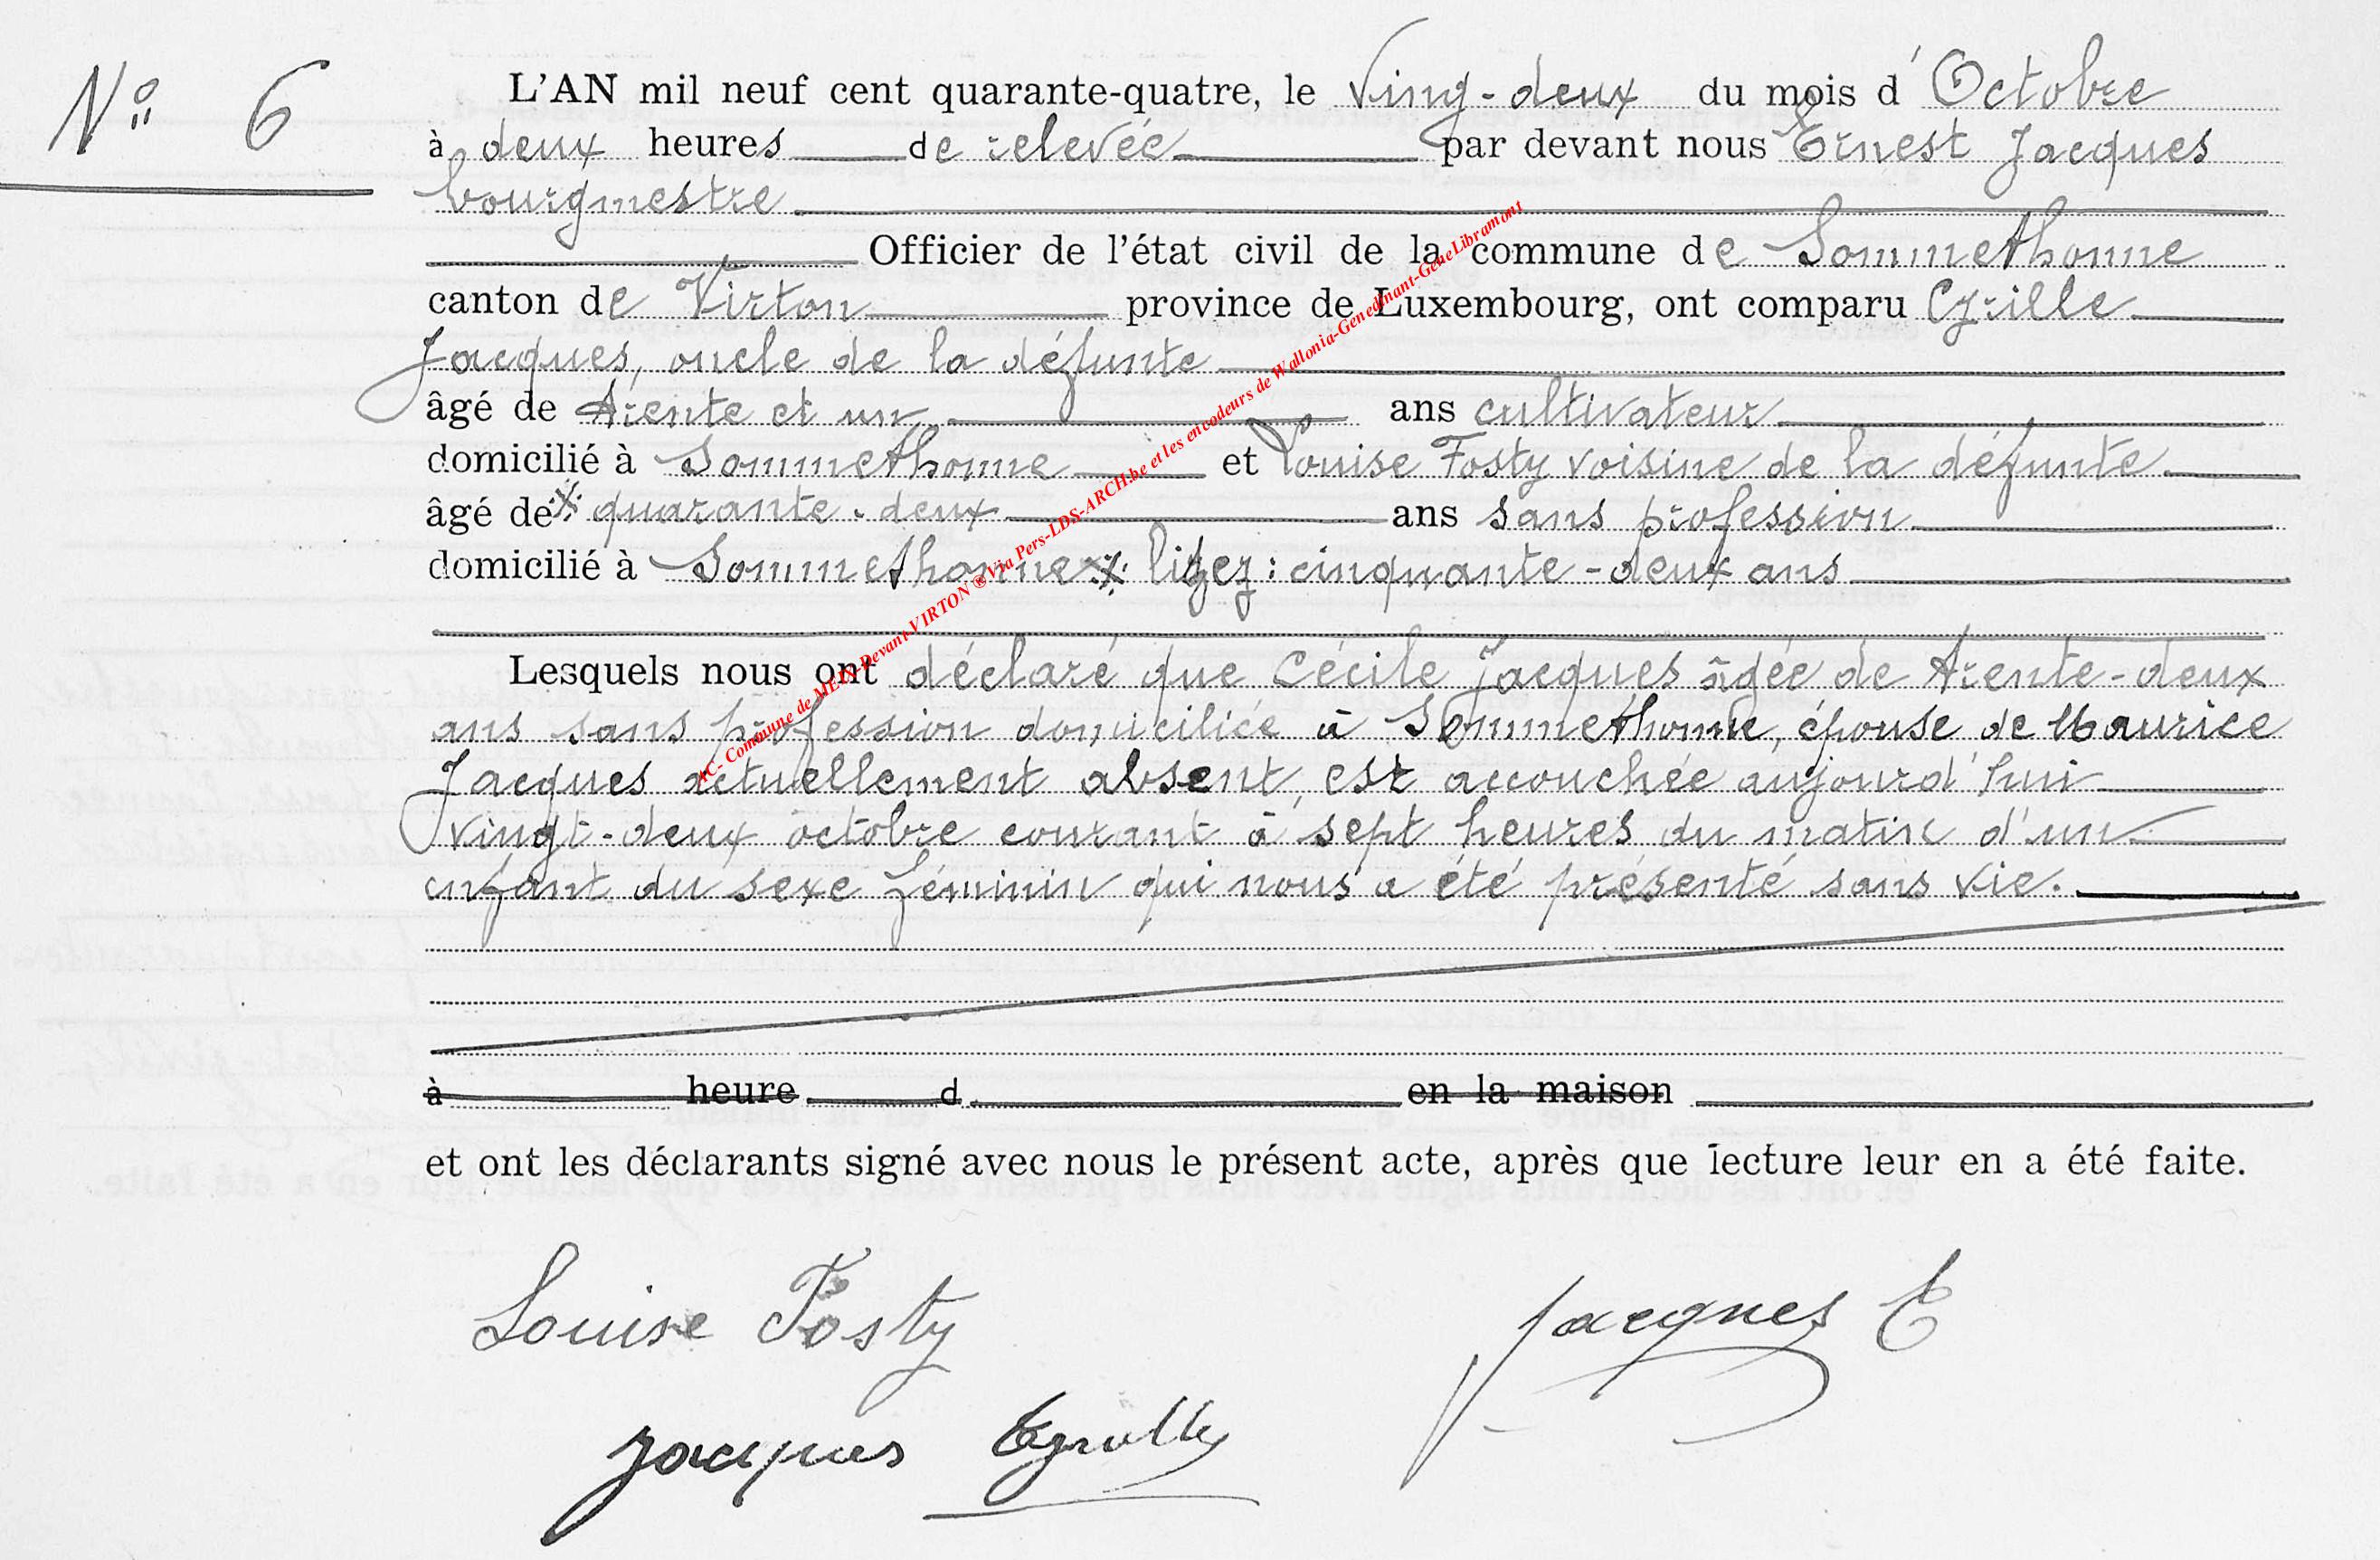 N° 6
L'AN mil neuf cent quarante-quatre, le Ving-deux du mois d'Octobre
à deux heures de relevée par devant nous Ernest Jacques
bourgmestre
Officier de l'état civil de la commune de Sommethonne
canton de Virton province de Luxembourg, ont comparu Cyrille
Jacques, oncle de la défunte
âgé de trente et un ans cultivateur
domicilié à Sommethonne et Louise Fosty voisine de la défunte
âgé de x quarante-deux ans sans profession
domicilié à Sommethonne x lizez : cinquante-deux ans
Lesquels nous ont déclaré que Cécile Jacques âgée de trente-deux
ans sans profession domiciliée à Sommethonne, épouse de Maurice
Jacques actuellement absent, est accouchée aujourd'hui
vingt-deux octobre courant à sept heures du matin d'un
enfant du sexe féminin qui nous a été présenté sans vie.
à heure d en la maison
et ont les déclarants signé avec nous le présent acte, après que lecture leur en a été faite.
Louise Fosty
Jacques E
Jacques
AC- Commune de MEIX-Devant-VIRTON ® Via Pers-LDS-ARCH.be et les encodeurs de Wallonia-Genedinant-GeneLibramont